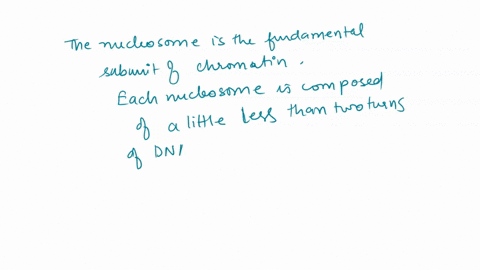 The nucleosome is the fundamental
subunit of chromatin.
Each nucleosome is composed
of a little less than two turns
of DN